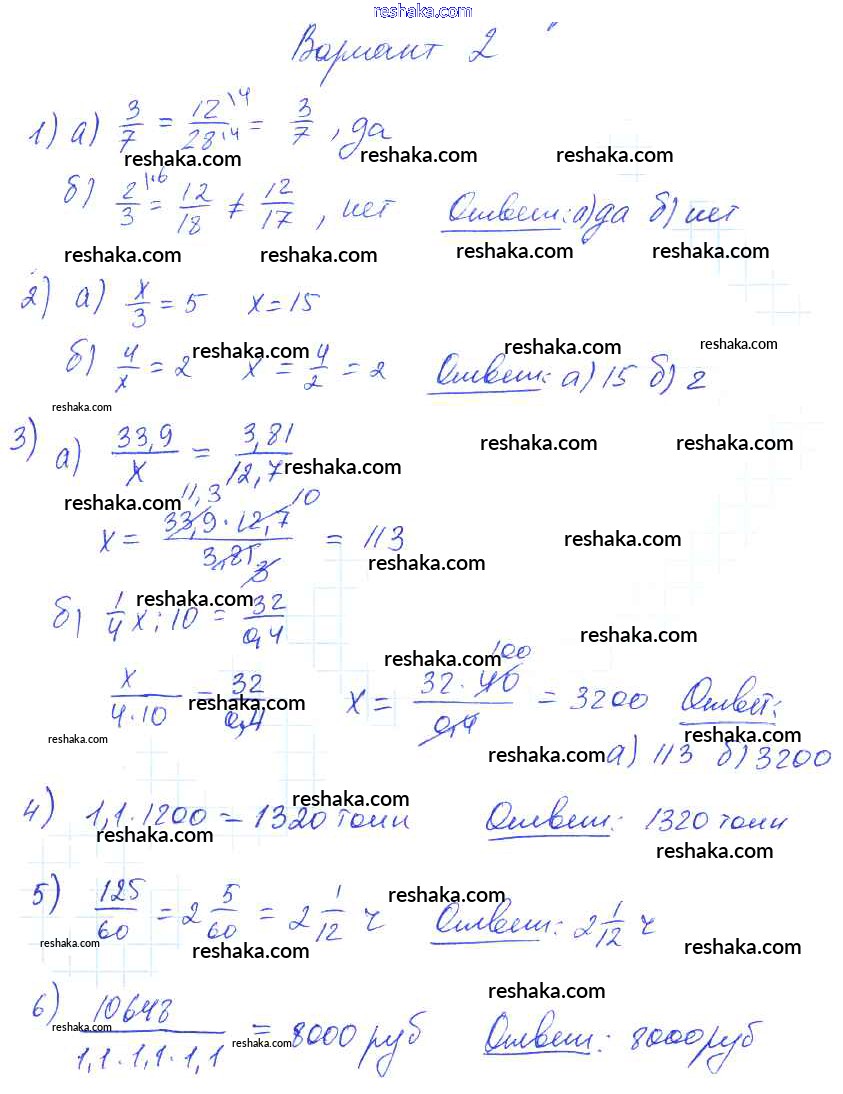 reshaka.com
Вариант 2
1) а) 3/7 = 12\4/28\4 = 3/7, да
reshaka.com reshaka.com reshaka.com
б) 2/3 \·6 = 12/18 ≠ 12/17, нет Ответ: а) да б) нет
reshaka.com reshaka.com reshaka.com reshaka.com
2) а) x/3 = 5 x = 15
reshaka.com reshaka.com reshaka.com
б) 4/x = 2 x = 4/2 = 2 Ответ: а) 15 б) 2
reshaka.com
3) а) 33,9/x = 3,81/12,7
reshaka.com reshaka.com reshaka.com
reshaka.com
11,3 10
x = 33,9 · 12,7 / 3,81 3 = 113
reshaka.com reshaka.com
б) 1/4 x : 10 = 32/0,4
reshaka.com reshaka.com
reshaka.com 100
x/4·10 = 32/0,4 x = 32 · 40 / 0,4 = 3200 Ответ:
reshaka.com reshaka.com reshaka.com reshaka.com
reshaka.com а) 113 б) 3200
reshaka.com
4) 1,1 · 1200 = 1320 тонн Ответ: 1320 тонн
reshaka.com reshaka.com
5) 125/60 = 2 5/60 = 2 1/12 ч Ответ: 2 1/12 ч
reshaka.com reshaka.com reshaka.com reshaka.com
reshaka.com
6) 10648 / 1,1 · 1,1 · 1,1 = 8000 руб Ответ: 8000 руб
reshaka.com reshaka.com reshaka.com